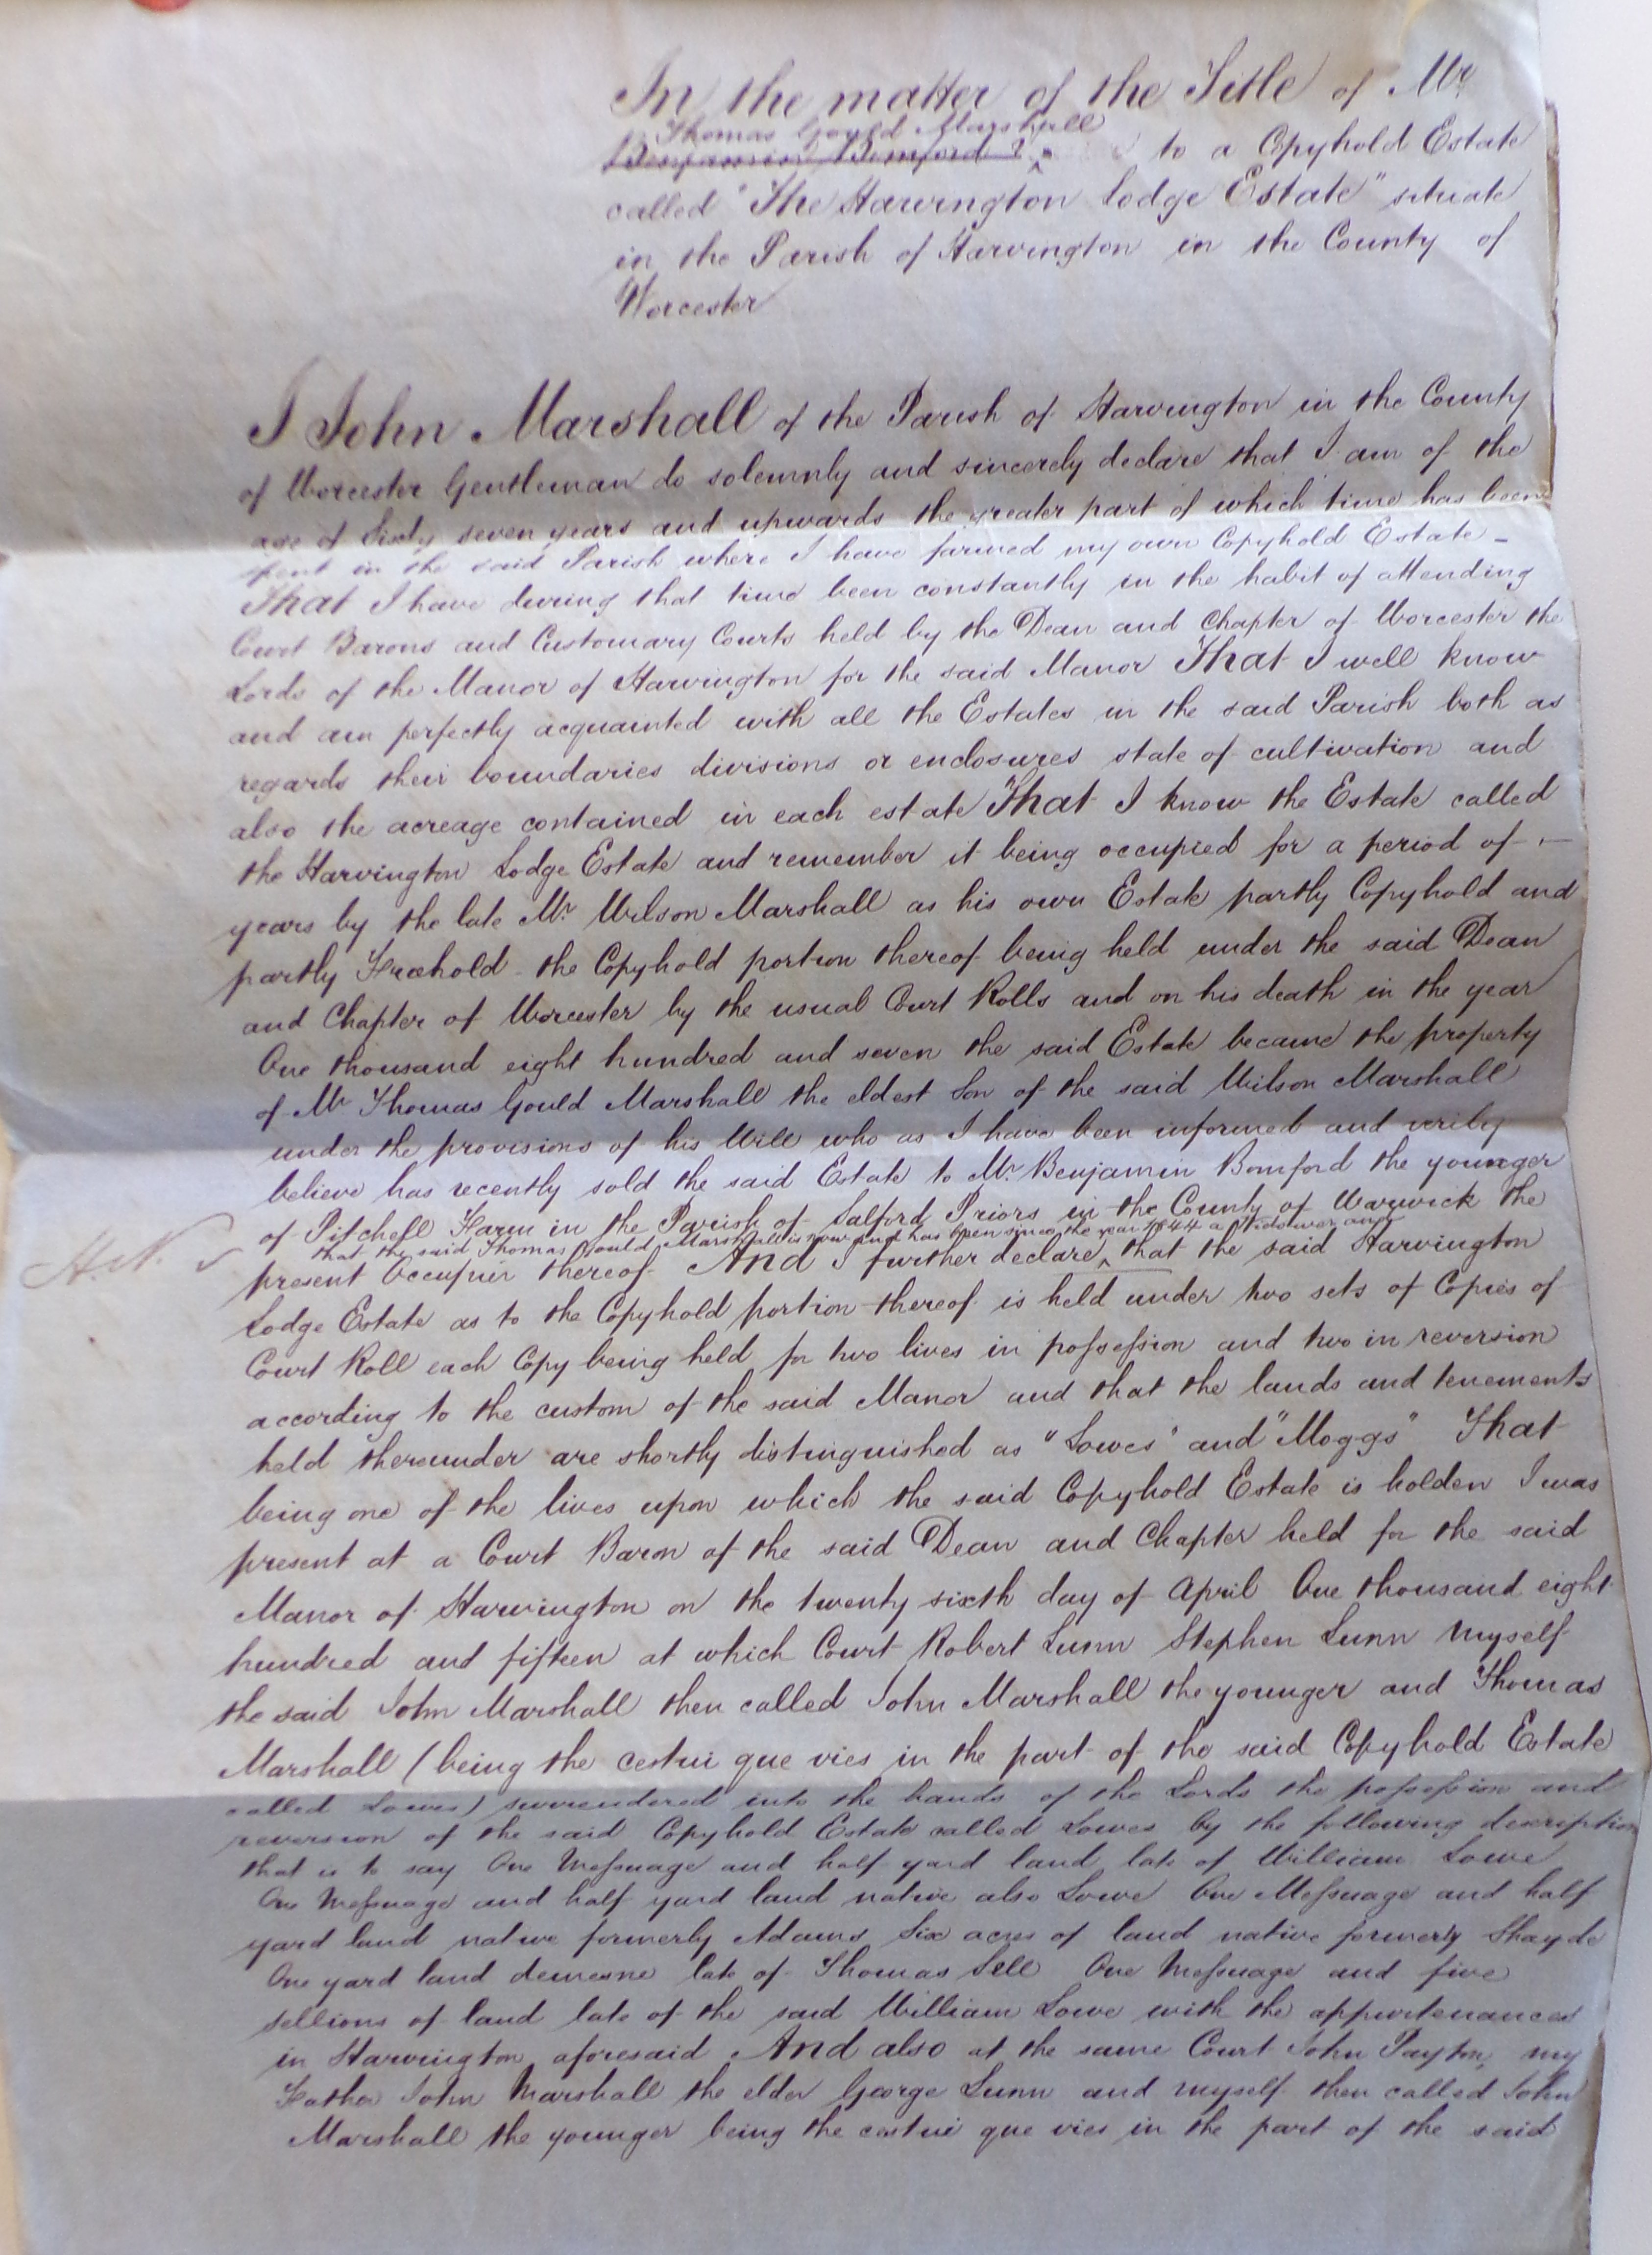 In the matter of the Title of Mr
Thomas Gould Marshall
Benjamin Bomford to a Copyhold Estate
called "The Harvington Lodge Estate" situate
in the Parish of Harvington in the County of
Worcester
I John Marshall of the Parish of Harvington in the County
of Worcester Gentleman do solemnly and sincerely declare that I am of the
age of Sixty seven years and upwards the greater part of which time has been
spent in the said Parish where I have farmed my own Copyhold Estate -
That I have during that time been constantly in the habit of attending
Court Barons and Customary Courts held by the Dean and Chapter of Worcester the
Lords of the Manor of Harvington for the said Manor That I well know
and am perfectly acquainted with all the Estates in the said Parish both as
regards their boundaries divisions or enclosures state of cultivation and
also the acreage contained in each estate That I know the Estate called
the Harvington Lodge Estate and remember it being occupied for a period of -
years by the late Mr Wilson Marshall as his own Estate partly Copyhold and
partly Freehold - the Copyhold portion thereof being held under the said Dean
and Chapter of Worcester by the usual Court Rolls and on his death in the year
One thousand eight hundred and seven the said Estate became the property
of Mr Thomas Gould Marshall the eldest Son of the said Wilson Marshall
under the provisions of his Will who as I have been informed and verily
believe has recently sold the said Estate to Mr. Benjamin Bomford the younger
of Pitchell Farm in the Parish of Salford Priors in the County of Warwick the
that the said Thomas Gould Marshall is now and has been since the year 1844 a Widower and
H. N. present Occupier thereof And I further declare that the said Harvington
Lodge Estate as to the Copyhold portion thereof is held under two sets of Copies of
Court Roll each Copy being held for two lives in possession and two in reversion
according to the custom of the said Manor and that the lands and tenements
held thereunder are shortly distinguished as "Lowes" and "Moggs" That
being one of the lives upon which the said Copyhold Estate is holden I was
present at a Court Baron of the said Dean and Chapter held for the said
Manor of Harvington on the twenty sixth day of April One thousand eight
hundred and fifteen at which Court Robert Lunn Stephen Lunn Myself
the said John Marshall then called John Marshall the younger and Thomas
Marshall (being the cestui que vies in the part of the said Copyhold Estate
called Lowes) surrendered into the hands of the Lords the possession and
reversion of the said Copyhold Estate called Lowes by the following description
that is to say One Messuage and half yard land late of William Lowe
One Messuage and half yard land native also Lowe One Messuage and half
yard land native formerly Adams Six acres of land native formerly
One yard land demesne late of Thomas Sell One Messuage and five
sellions of land late of the said William Lowe with the appurtenances
in Harvington aforesaid And also at the same Court John Payton my
Father John Marshall the elder George Lunn and myself then called John
Marshall the younger being the cestui que vies in the part of the said